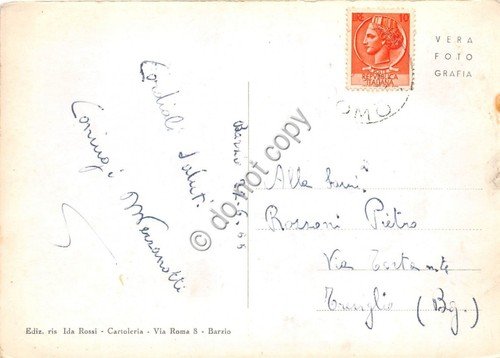 LIRE 10
REPUBBLICA
ITALIANA
VERA
FOTO
GRAFIA
COMO
Cordiali Saluti
Coniugi
Barzio
do not copy
Alla Fam.
Rozzoni Pietro
Via
Treviglio (Bg.)
Ediz. ris Ida Rossi - Cartoleria - Via Roma 8 - Barzio